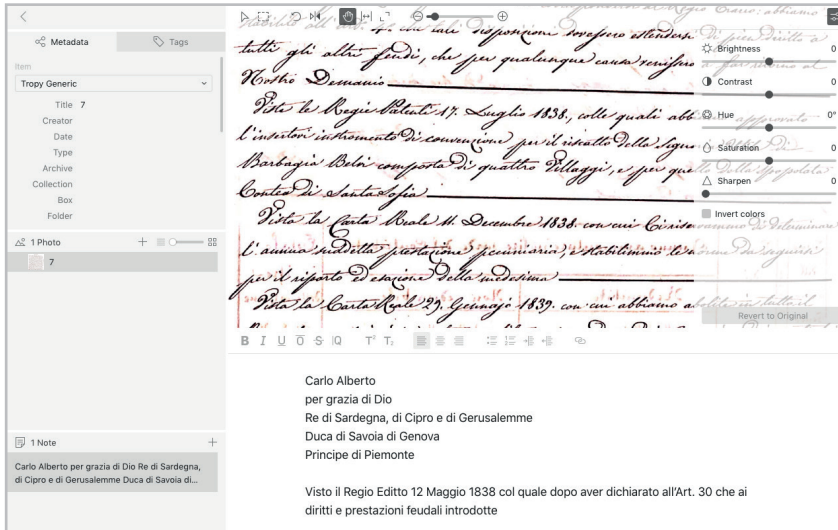 Metadata
Tags
Item
Tropy Generic
Title 7
Creator
Date
Type
Archive
Collection
Box
Folder
1 Photo
7
1 Note
Carlo Alberto per grazia di Dio Re di Sardegna,
di Cipro e di Gerusalemme Duca di Savoia di...
con tale disposizione
tutti gli altri feudi, che per qualunque causa
Nostro Demanio
Viste le Regie Patenti 17. Luglio 1838., colle quali abb approvato
l'insertovi instromento di convenzione per il riscatto della
Barbagia Belvì composta di quattro Villaggi, e per quella della spopolata
Contea di Santa Sofia
Vista la Carta Reale 11. Decembre 1838. con cui Ci riservammo di determinare
l'annua suddetta prestazione pecuniaria, e stabilimmo le norme da seguirsi
per il riparto ed esazione della medesima
Vista la Carta Reale 29. Gennajo 1839. con cui abbiamo
Brightness 0
Contrast 0
Hue 0°
Saturation 0
Sharpen 0
Invert colors
Revert to Original
B I U O S Q T² T₂
Carlo Alberto
per grazia di Dio
Re di Sardegna, di Cipro e di Gerusalemme
Duca di Savoia di Genova
Principe di Piemonte
Visto il Regio Editto 12 Maggio 1838 col quale dopo aver dichiarato all'Art. 30 che ai
diritti e prestazioni feudali introdotte